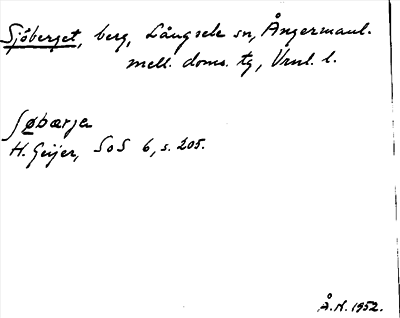 Sjöberget, berg, Långsele sn, Ångermanl.
mell. doms. tg, Vnl. l.
ʃøbærja
H. Geijer, SoS 6, s. 205.
Å.N. 1952.